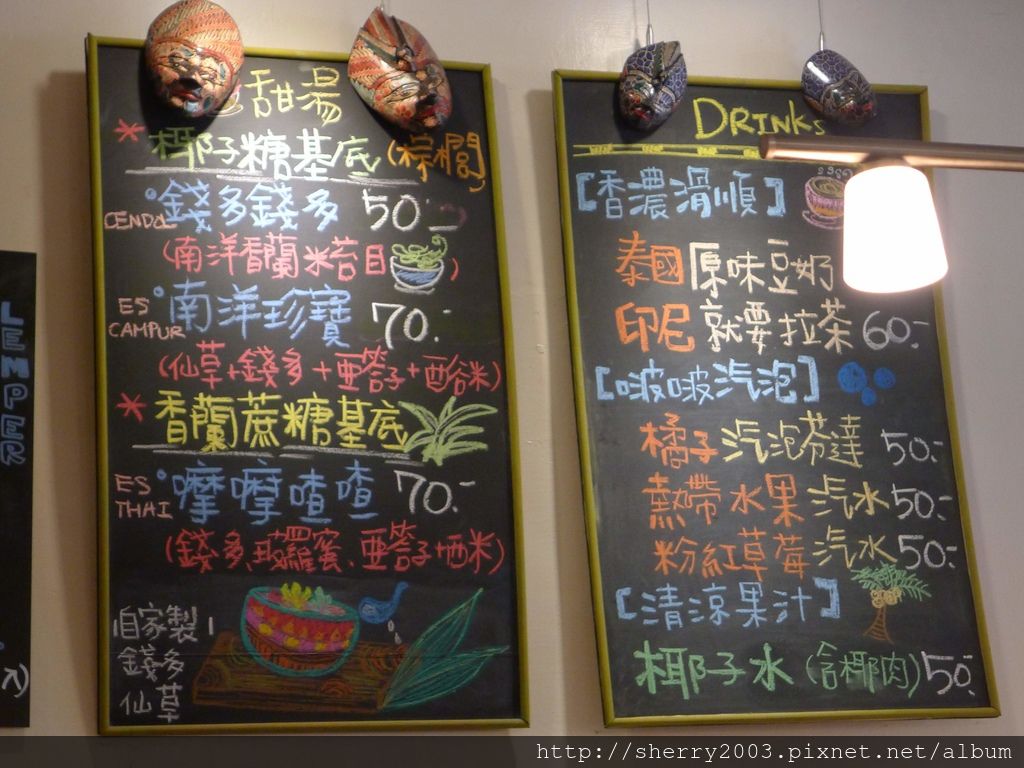 甜湯
* 椰子糖基底(棕櫚)
CENDOL 錢多錢多 50.-
(南洋香蘭米苔目)
ES CAMPUR 南洋珍寶 70.-
(仙草+錢多+亞答子+西谷米)
* 香蘭蔗糖基底
ES THAI 摩摩喳喳 70.-
(錢多、菠蘿蜜、亞答子+西米)
自家製!
錢多
仙草
LEMPER
DRINKS
[香濃滑順]
泰國 原味豆奶
印尼 就要拉茶 60.-
[啵啵汽泡]
橘子汽泡芬達 50.-
熱帶水果汽水 50.-
粉紅草莓汽水 50.-
[清涼果汁]
椰子水(含椰肉) 50.-
http://sherry2003.pixnet.net/album